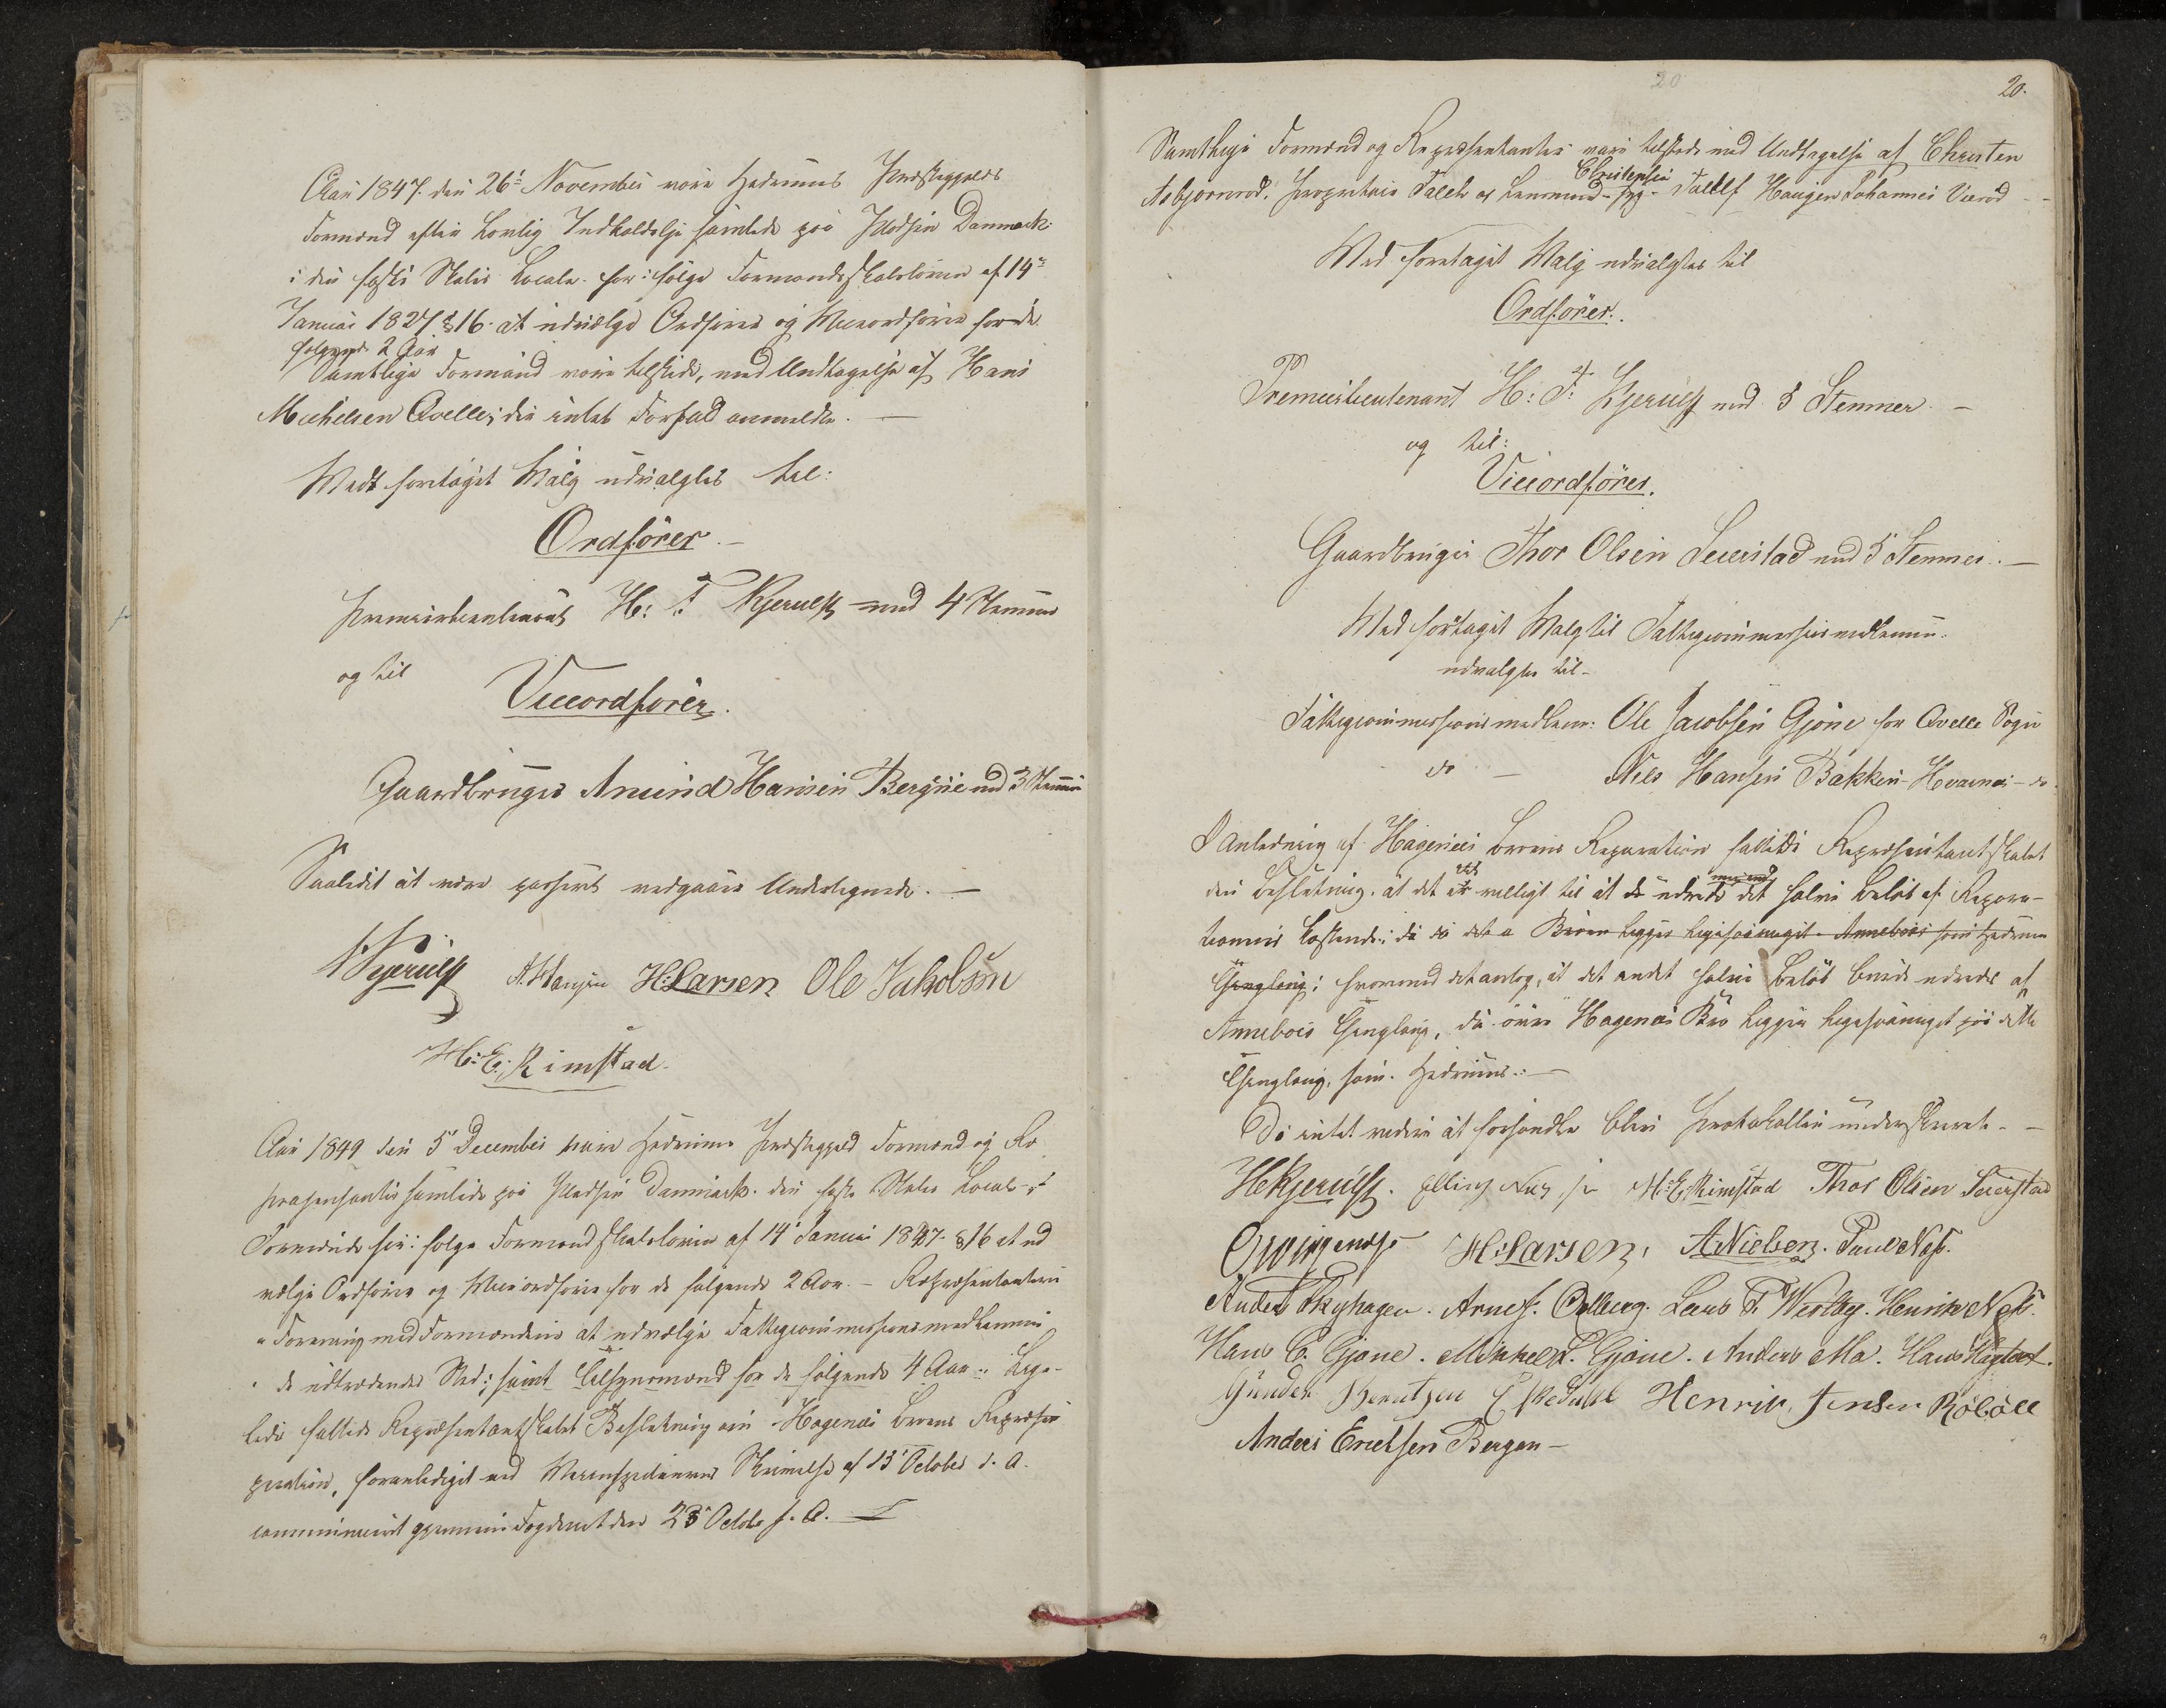 Aar 1847 den 26de November vare Hedrums Præstegjelds
Formænd efter lovlig Indkaldelse samlede paa Pladsen Danmark
i den faste Skoles Locale for i følge Formandskabsloven af 14de
Januar 1837 § 16 at udvælge Ordfører og Viceordfører for de
følgende 2 Aar
Samtlige Formænd vare tilstede, med Undtagelse af Hans
Mechelsen Qvelle, der intet Forfald anmeldte. —
Ved foretaget Valg udvalgtes til:
Ordfører. —
Premierlieutenant H: F. Kjerulf med 4 Stemmer
og til
Viceordfører.
Gaardbruger Amund Hansen Bergene med 3 Stemmer
Saaledes at være passeret vedgaaer Undertegnede. —
Kjerulf A. Hansen H: Larsen Ole Jakobsen
H: E: Rimstad.
Aar 1849 den 5 December vare Hedrums Præstegjeld Formænd og Re
præsentanter samlede paa Pladsen Danmark den faste Skoles Local
Formænd for i følge Formandskabsloven af 14 Januar 1837 § 16 at ud
vælge Ordfører og Viceordfører for de følgende 2 Aar. — Repræsentanterne
i Forening med Formændene at udvælge Fattigcommissionsmedlemmer
i de udtrædendes Sted; samt Tilsynsmænd for de følgende 4 Aar. Lige-
ledes fattede Repræsentantskabet Beslutning om Hagenæs Broens Repa
ration, foranlediget ved Veiinspecteurens Skrivelse af 13 October d. A.
communiceret gjennem Fogderiet den 23 Octobr s. A. —
20
20.
Samtlige Formænd og Repræsentanter vare tilstede med Undtagelse af Christen
Christensen
Asbjønrød, Proprietair Falch og Lensmand — Tallef Haugen Johannes Verød —
Ved foretaget Valg udvalgtes til
Ordfører.
Premierlieutenant H: F: Kjerulf med 8 Stemmer —
og til:
Viceordfører.
Gaardbruger Thor Olsen Seierstad med 5 Stemmer. —
Ved foretaget Valg til Fattigcommissionsmedlemmer
udvalgtes til —
Fattigcommissionsmedlem: Ole Jacobsen Gjone for Qvelle Sogn
do — Nils Hansen Bakken Hvarnes — do
I Anledning af Hagenæs Broens Reparation fattede Repræsentantskabet
den Beslutning, at det er villigt til at udrede det halve Beløb af Repara-
tionens Kostende; da Broen ligger ligesaameget Annebøes som Hedrums
Thinglaug; hvorimod det antog, at det andet halve Beløb burde udredes af
Annebøes Thinglaug, da Hagenæs Bro ligger ligesaameget paa dette
Thinglaug, som Hedrums. —
Da intet videre at forhandle blev Protokollen underskrevet. —
HKjerulf. Elling Næs H: E: Rimstad Thor Olsen Seierstad
H: Larsen. A. Nielsen. Paul Næss.
Anders Skyhagen. Arne J. Odberg. Lars T. Vestby. Henrik Næss.
Hans C. Gjone. Mikkel L. Gjone. Anders Mo. Hans
Gunder Berntsen Eskedahl Henrik Jensen Råbåll
Anders Ericksen Bergan —